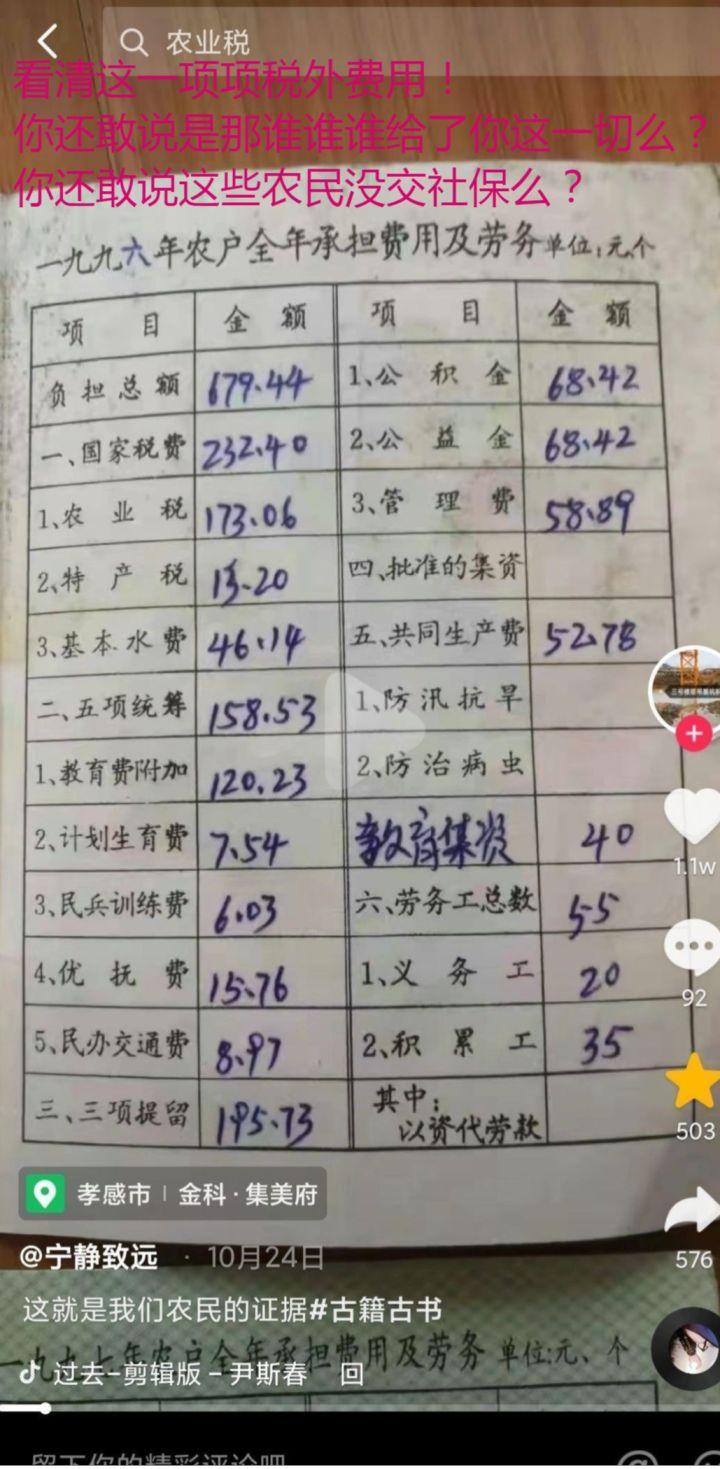 农业税
看清这一项项税外费用！
你还敢说是那谁谁谁给了你这一切么？
你还敢说这些农民没交社保么？
一九九六年农户全年承担费用及劳务 单位:元、个
项 目 金 额 项 目 金 额
负担总额 679.44 1、公积金 68.42
一、国家税费 232.40 2、公益金 68.42
1、农业税 173.06 3、管理费 58.89
2、特产税 13.20 四、批准的集资
3、基本水费 46.14 五、共同生产费 52.78
二、五项统筹 158.53 1、防汛抗旱
1、教育费附加 120.23 2、防治病虫
2、计划生育费 7.54 教育集资 40
3、民兵训练费 6.03 六、劳务工总数 55
4、优抚费 15.76 1、义务工 20
5、民办交通费 8.97 2、积累工 35
三、三项提留 195.73 其中：
以资代劳款
1.1w
92
503
576
孝感市 | 金科·集美府
@宁静致远 · 10月24日
这就是我们农民的证据#古籍古书
一九九七年农户全年承担费用及劳务 单位:元、个
过去-剪辑版-尹斯春 回
留下你的精彩评论吧